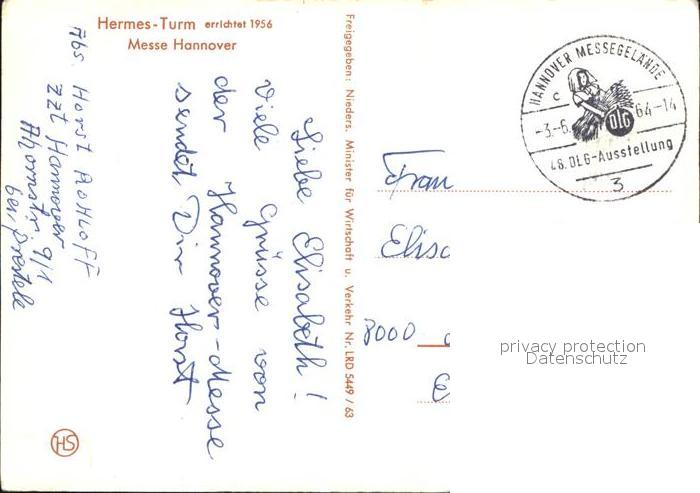 Hermes-Turm errichtet 1956
Messe Hannover
Abs. Horst ROHLOFF
zzt Hannover
Ahornstr. 9/1
bei
Liebe Elisabeth!
Viele Grüsse von
der Hannover-Messe
sendet Dir Horst
Freigegeben: Nieders. Minister für Wirtschaft u. Verkehr Nr. LRD 5449/63
HANNOVER MESSEGELÄNDE
c
-3.-6. 64-14
DLG
48. DLG-Ausstellung
3
Frau
Elisa
8000
E
privacy protection
Datenschutz
HS